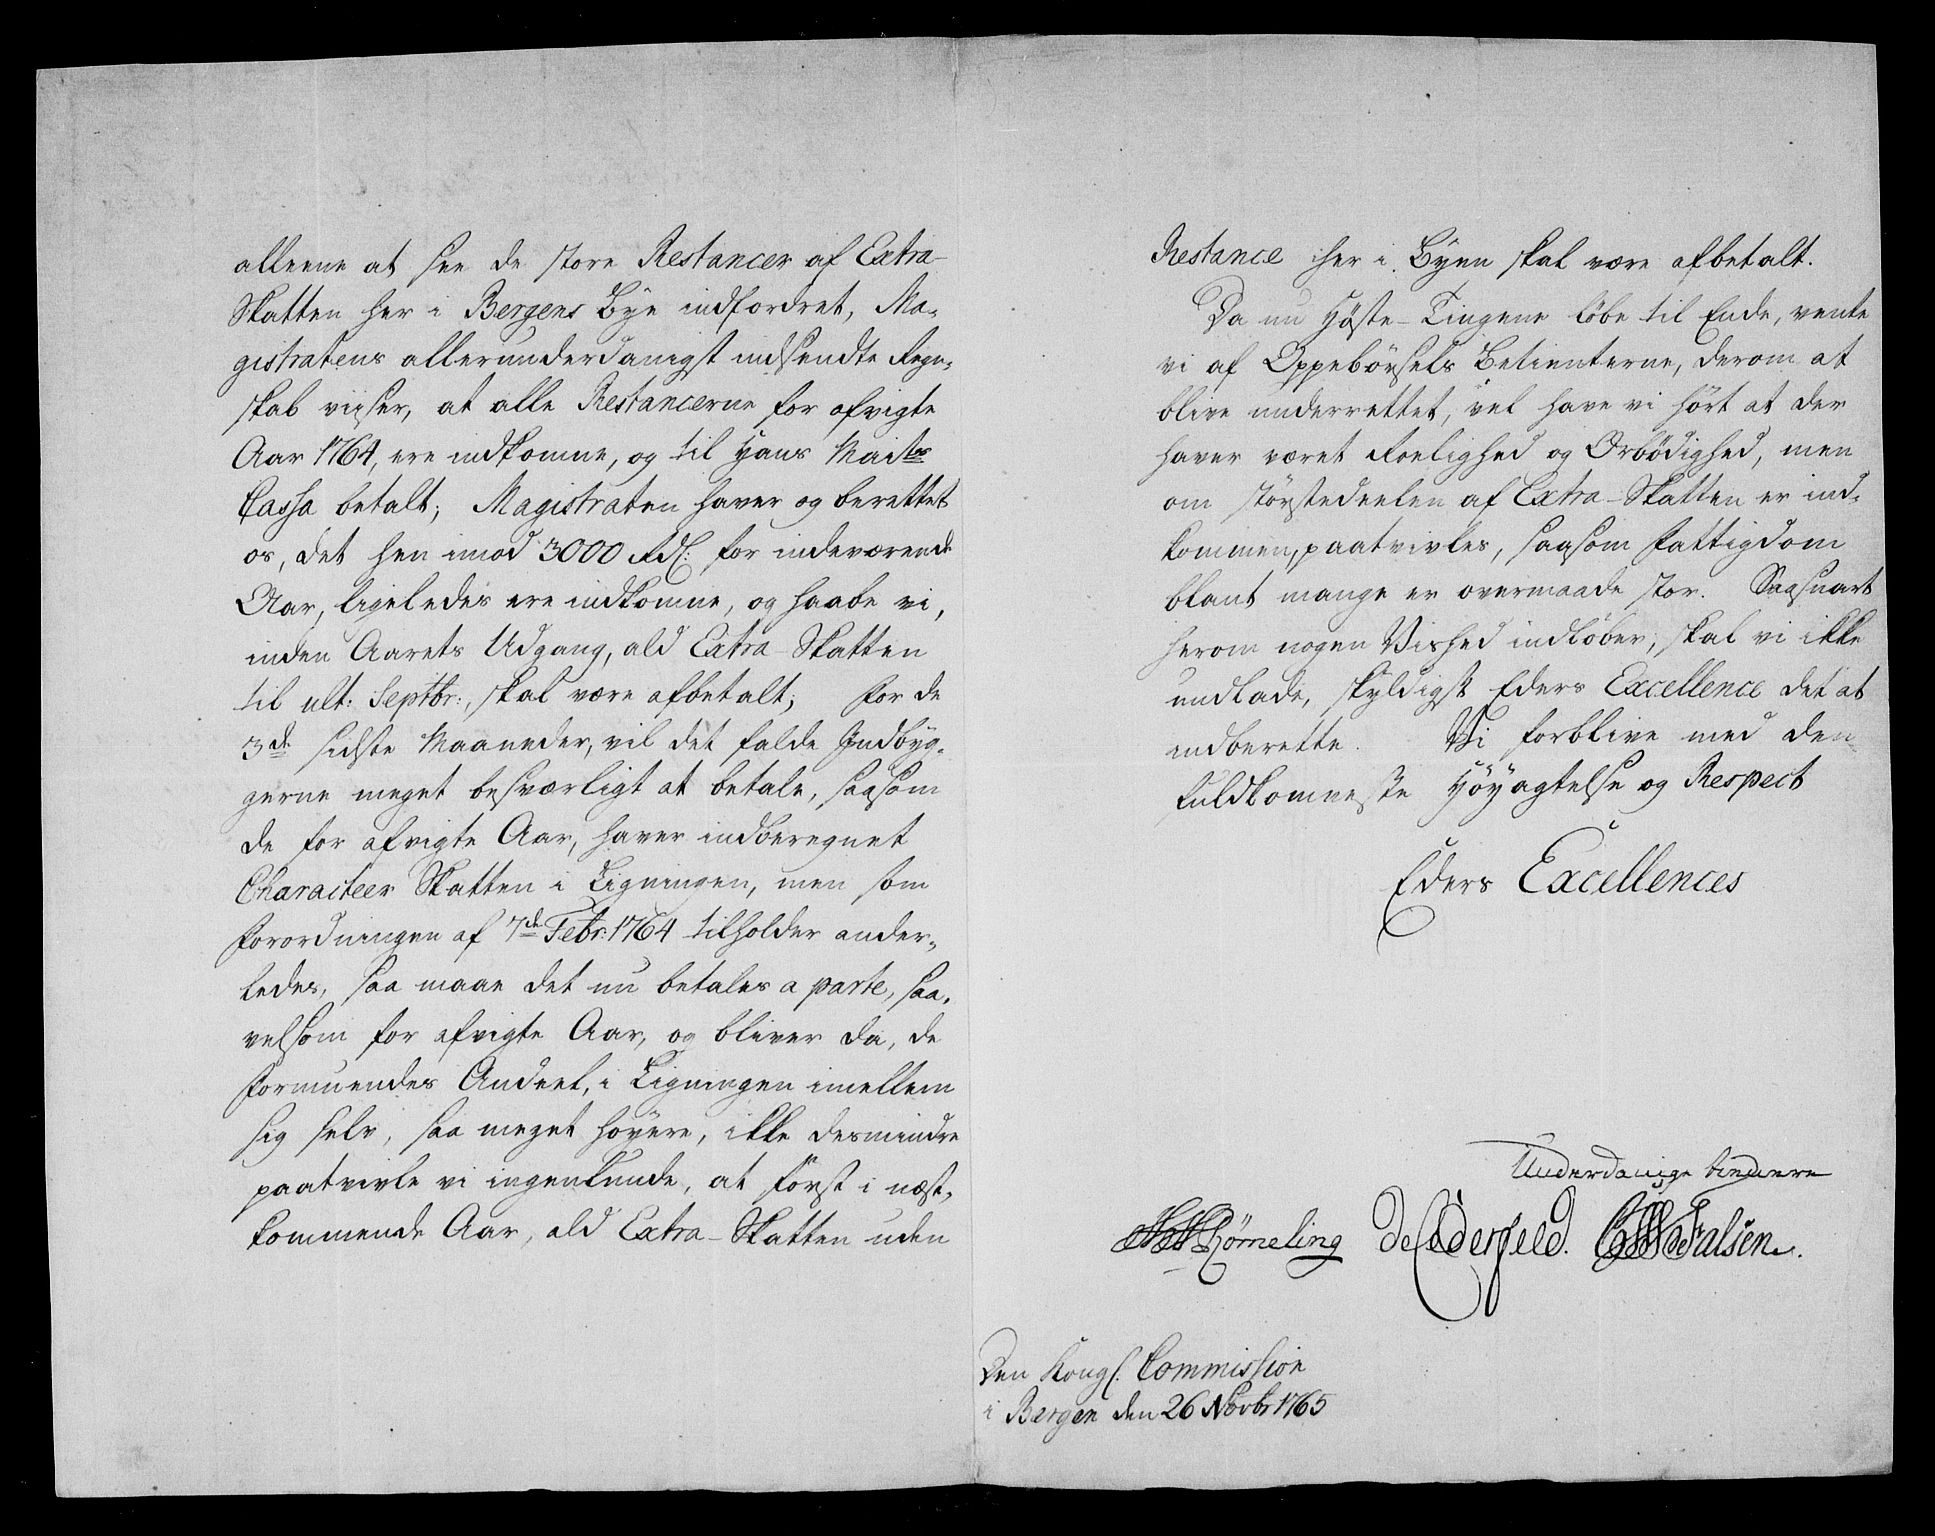 alleene at see de store Restancer af Extra-
Skatten her i Bergens Bye indfordret, Ma-
gistratens allerunderdanigst indsendte Regn-
skab viiser, at alle Restancerne for afvigte
Aar 1764, ere indkomne, og til Hans Maits
Cassa betalt; Magistraten haver og berettet
os, det hen imod 3000 Rdl: for indeværende
Aar, ligeledes ere indkomne, og haabe vi,
inden Aarets Udgang, ald Extra-Skatten
til ult: Septbr:, skal være afbetalt; For de
3de sidste Maaneder, vil det falde Indbyg-
gerne meget besværligt at betale, saasom
de for afvigte Aar, haver indberegnet
Characteer Skatten i Ligningen, men som
Forordningen af 7de Febr: 1764 tilholder ander-
ledes, saa maae det nu betales a parte, saa-
velsom for afvigte Aar, og bliver da, de
Formuendes Andeel, i Ligningen imellem
sig selv, saa meget høyere, ikke desmindre
paatvivle vi ingenlunde, at først i næst-
kommende Aar, ald Extra-Skatten uden
Restance her i Byen skal være afbetalt.
Da nu Høste-Tingene løbe til Ende, vente
vi af Oppebørsels Betienterne, derom at
blive underrettet, vel have vi hørt at der
haver været Roelighed og Ærbødighed, men
om størstedeelen af Extra-Skatten er ind-
kommen, paatvivles, saasom Fattigdom
blant mange er overmaade stor. Saasnart
herom nogen Vished indløber, skal vi ikke
undlade, skyldigst Eders Excellence det at
indberette. Vi forblive med den
fuldkomneste Høyagtelse og Respect
Eders Excellences
Underdanige tienere
Römeling de Cederfeld. Falsen.
Den Kongl: Commission
i Bergen den 26 Novbr 1765